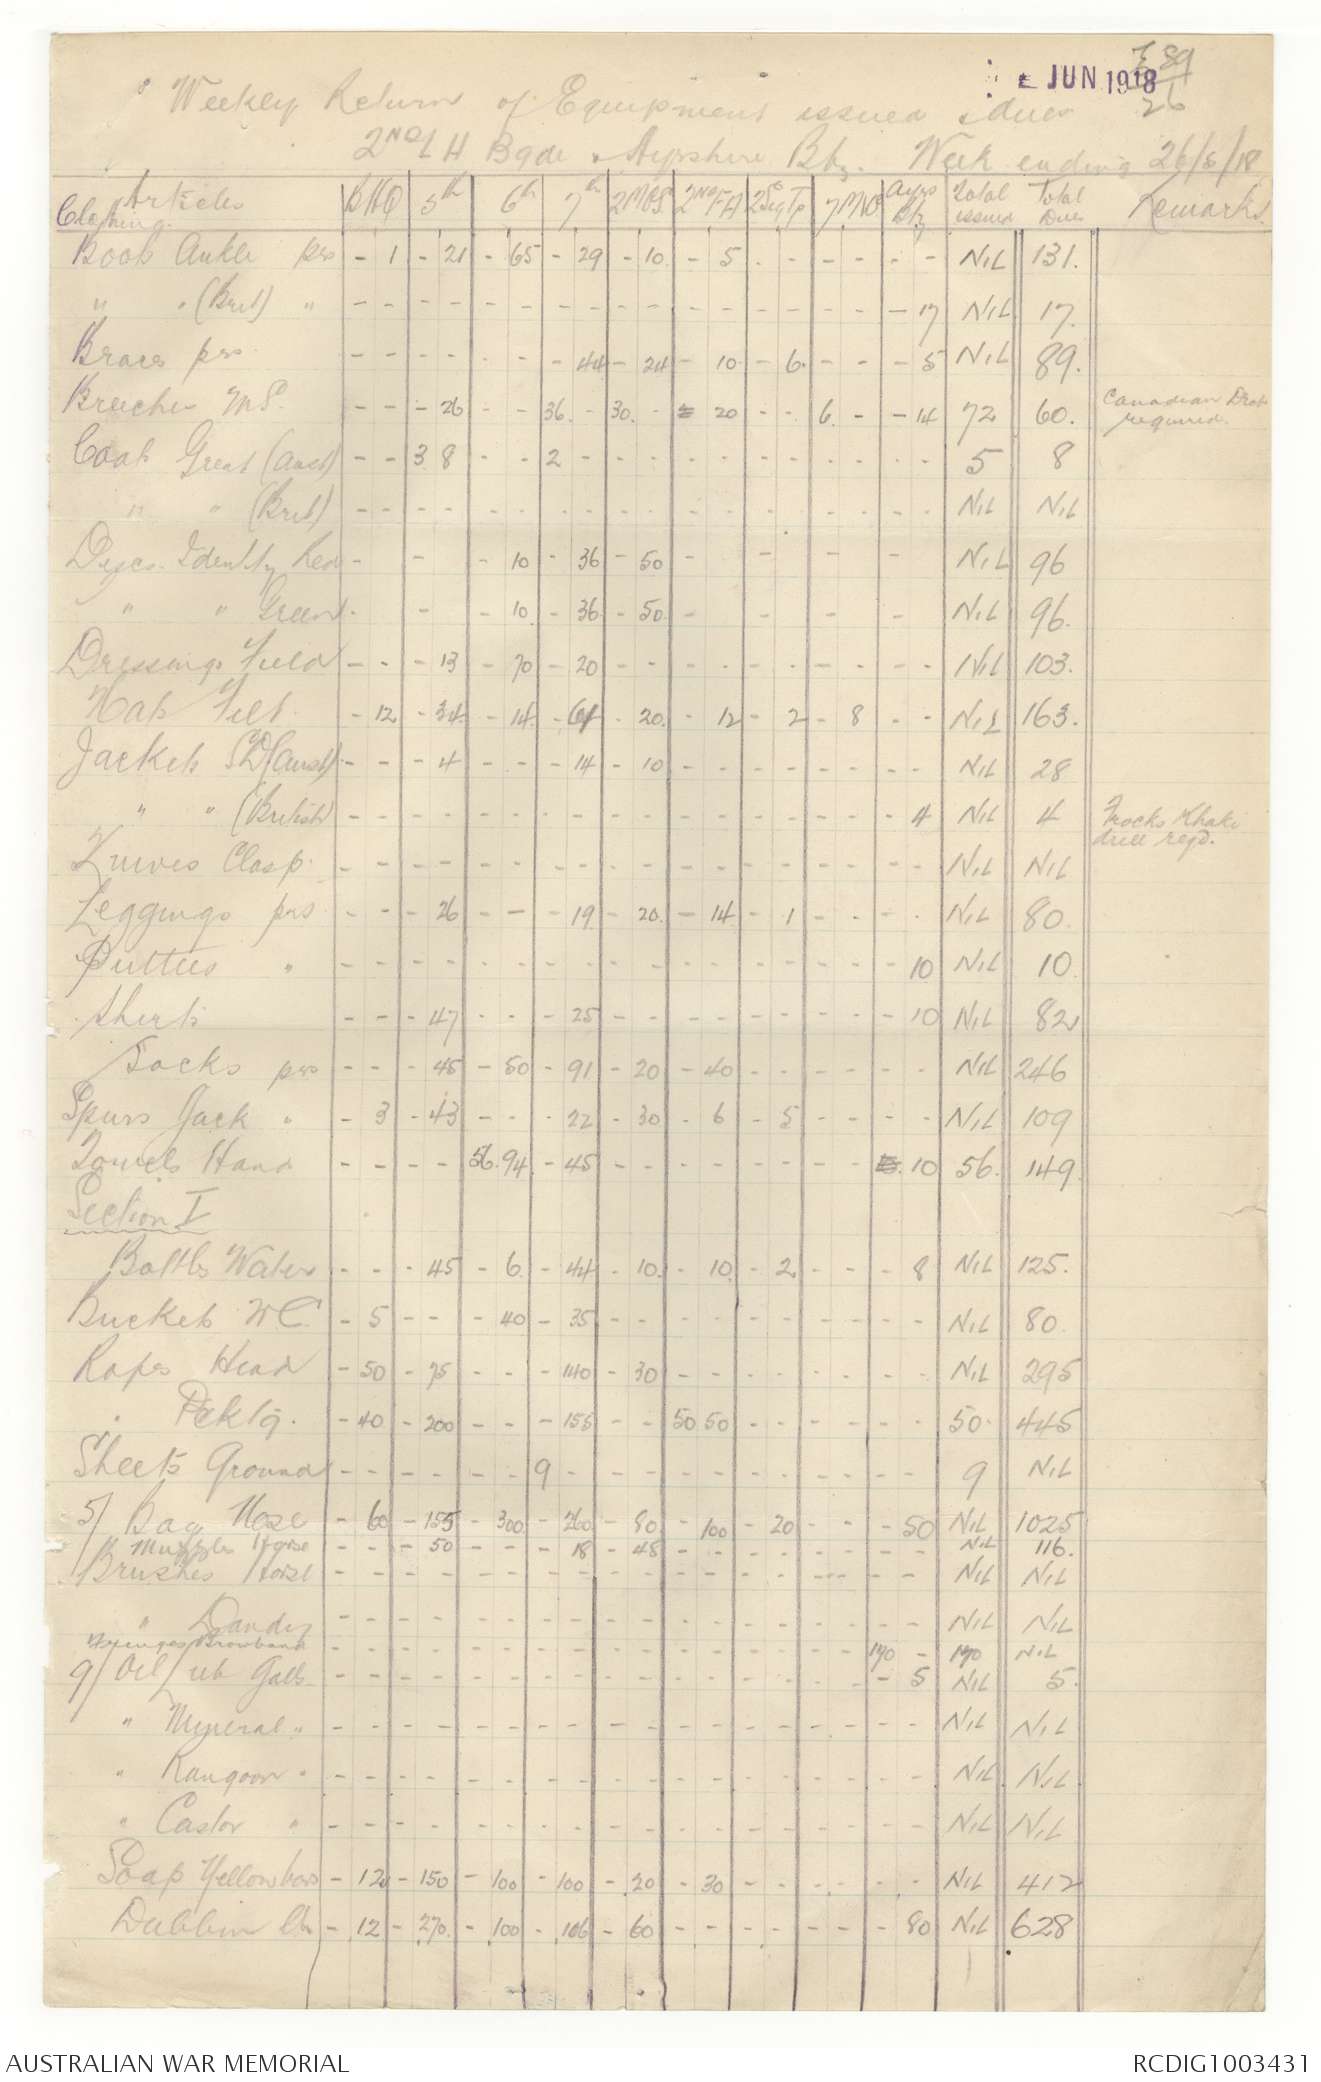 2 JUN 1918
E 89
26
Weekly Return of Equipment issued & dues
2ND L H Bgde & Ayrshire Bty. Week ending 26/5/18
Articles BHQ 5th 6th 7th 2MGS 2ND FA 2 Sig Tp 7 MVO Ayrs Bty Total issued Total Dues Remarks
Clothing.
Boots Ankle prs - 1 - 21 - 65 - 29 - 10 - 5 - - - - - - NIL 131.
" " (Brit) " - - - - - - - - - - - - - - - - - 17 NIL 17.
Braces prs - - - - - 44 - 24 - 10 - 6 - - - 5 NIL 89.
Breeches M.P. - - - 26 - - 36 - 30 - - 20 - - 6 - - 14 72 60. Canadian Drab required.
Coats Great (Aust) - - 3 8 - - 2 - - - - - - - - - - - 5 8
" " (Brit) - - - - - - - - - - - - - - - - - - NIL NIL
Discs Identity Red - - - 10 - 36 - 50 - - - - NIL 96
" " Green - - - 10 - 36 - 50 - - - - NIL 96.
Dressings Field - - - 13 - 70 - 20 - - - - - - - - - - NIL 103.
Hats Felt - 12 - 34 - 14 - 61 - 20 - 12 - 2 - 8 - - NIL 163.
Jackets SD (Aust) - - - 4 - - - 14 - 10 - - - - - - - - NIL 28
" " (British) - - - - - - - - - - - - - - - - - 4 NIL 4 Frocks Khaki drill reqd.
Knives Clasp - - - - - - - - - - - - - - - - - - NIL NIL
Leggings prs - - - 26 - - - 19 - 20 - 14 - 1 - - - - NIL 80.
Puttees " - - - - - - - - - - - - - - - - - 10 NIL 10.
Shirts - - - 47 - - - 25 - - - - - - - - - 10 NIL 82
Socks prs - - - 45 - 50 - 91 - 20 - 40 - - - - - - NIL 246
Spurs Jack " - 3 - 43 - - - 22 - 30 - 6 - 5 - - - - NIL 109
Towels Hand - - - - 56 94 - 45 - - - - - - - - 10 56. 149.
Section I
Bottles Water - - - 45 - 6 - 44 - 10 - 10 - 2 - - - 8 NIL 125.
Buckets W C. - 5 - - - 40 - 35 - - - - - - - - - - NIL 80.
Ropes Head - 50 - 75 - - - 140 - 30 - - - - - - - - NIL 295
" Pcktg. - 40 - 200 - - - 155 - - 50 50 - - - - - - 50. 445
Sheets Ground - - - - - - 9 - - - - - - - - - - - 9 NIL
5/ Bag Nose - 60 - 155 - 300 - 260 - 80 - 100 - 20 - - - 50 NIL 1025
Muzzles Horse - - - 50 - - - 18 - 48 - - - - - - - - NIL 116.
Brushes Horse - - - - - - - - - - - - - - - - - - NIL NIL
" Dandy - - - - - - - - - - - - - - - - - - NIL NIL
Fringes Browband - - - - - - - - - - - - - - - - 170 - 170 NIL
9/ Oil Lub Galls - - - - - - - - - - - - - - - - - 5 NIL 5.
" Mineral " - - - - - - - - - - - - - - - - - - NIL NIL
" Rangoon " - - - - - - - - - - - - - - - - - - NIL NIL
" Castor " - - - - - - - - - - - - - - - - - - NIL NIL
Soap Yellow bars - 12 - 150 - 100 - 100 - 20 - 30 - - - - - - NIL 412
Dubbin lbs - 12 - 270 - 100 - 106 - 60 - - - - - - - 80 NIL 628
AUSTRALIAN WAR MEMORIAL RCDIG1003431